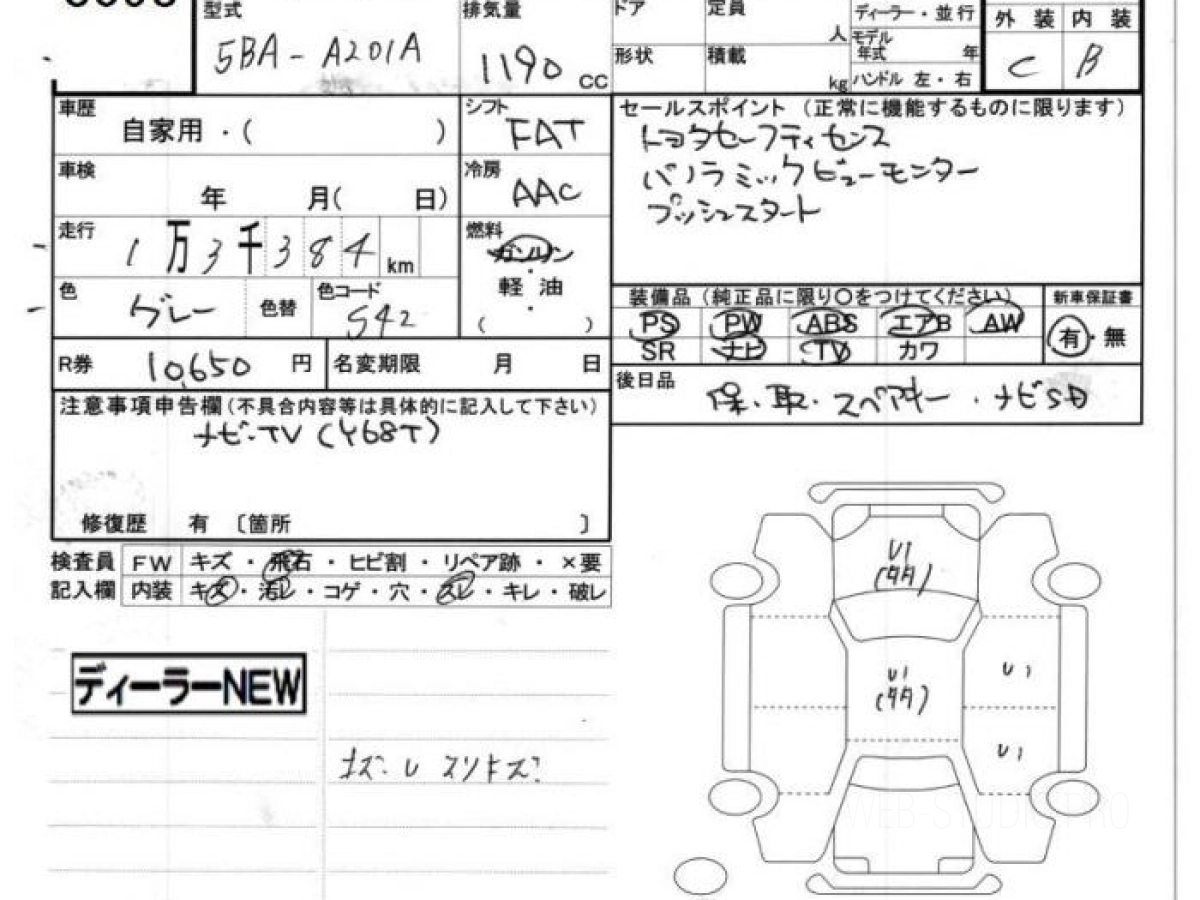 型式 排気量 ドア 定員 人 ディーラー・並行 外装 内装
5BA-A201A 1190 CC 形状 積載 kg モデル年式 年 C B
ハンドル 左・右
車歴 自家用・( ) シフト FAT
セールスポイント (正常に機能するものに限ります)
トヨタセーフティセンス
パノラミックビューモニター
プッシュスタート
車検 年 月( 日) 冷房 AAC
走行 1万3千384km 燃料 ガソリン・軽油・( )
色 グレー 色替 色コード S42
装備品 (純正品に限り○をつけてください) 新車保証書
PS PW ABS エアB AW 有・無
SR ナビ TV カワ
R券 10,650円 名変期限 月 日
後日品 保・取・スペアキー・ナビSD
注意事項申告欄(不具合内容等は具体的に記入して下さい)
ナビ・TV (Y68T)
修復歴 有 〔箇所 〕
検査員 FW キズ・飛石・ヒビ割・リペア跡・×要
記入欄 内装 キズ・汚レ・コゲ・穴・スレ・キレ・破レ
ディーラーNEW
スリキズ
U1
U1
U1
U1
WEB-STUDIO.PRO